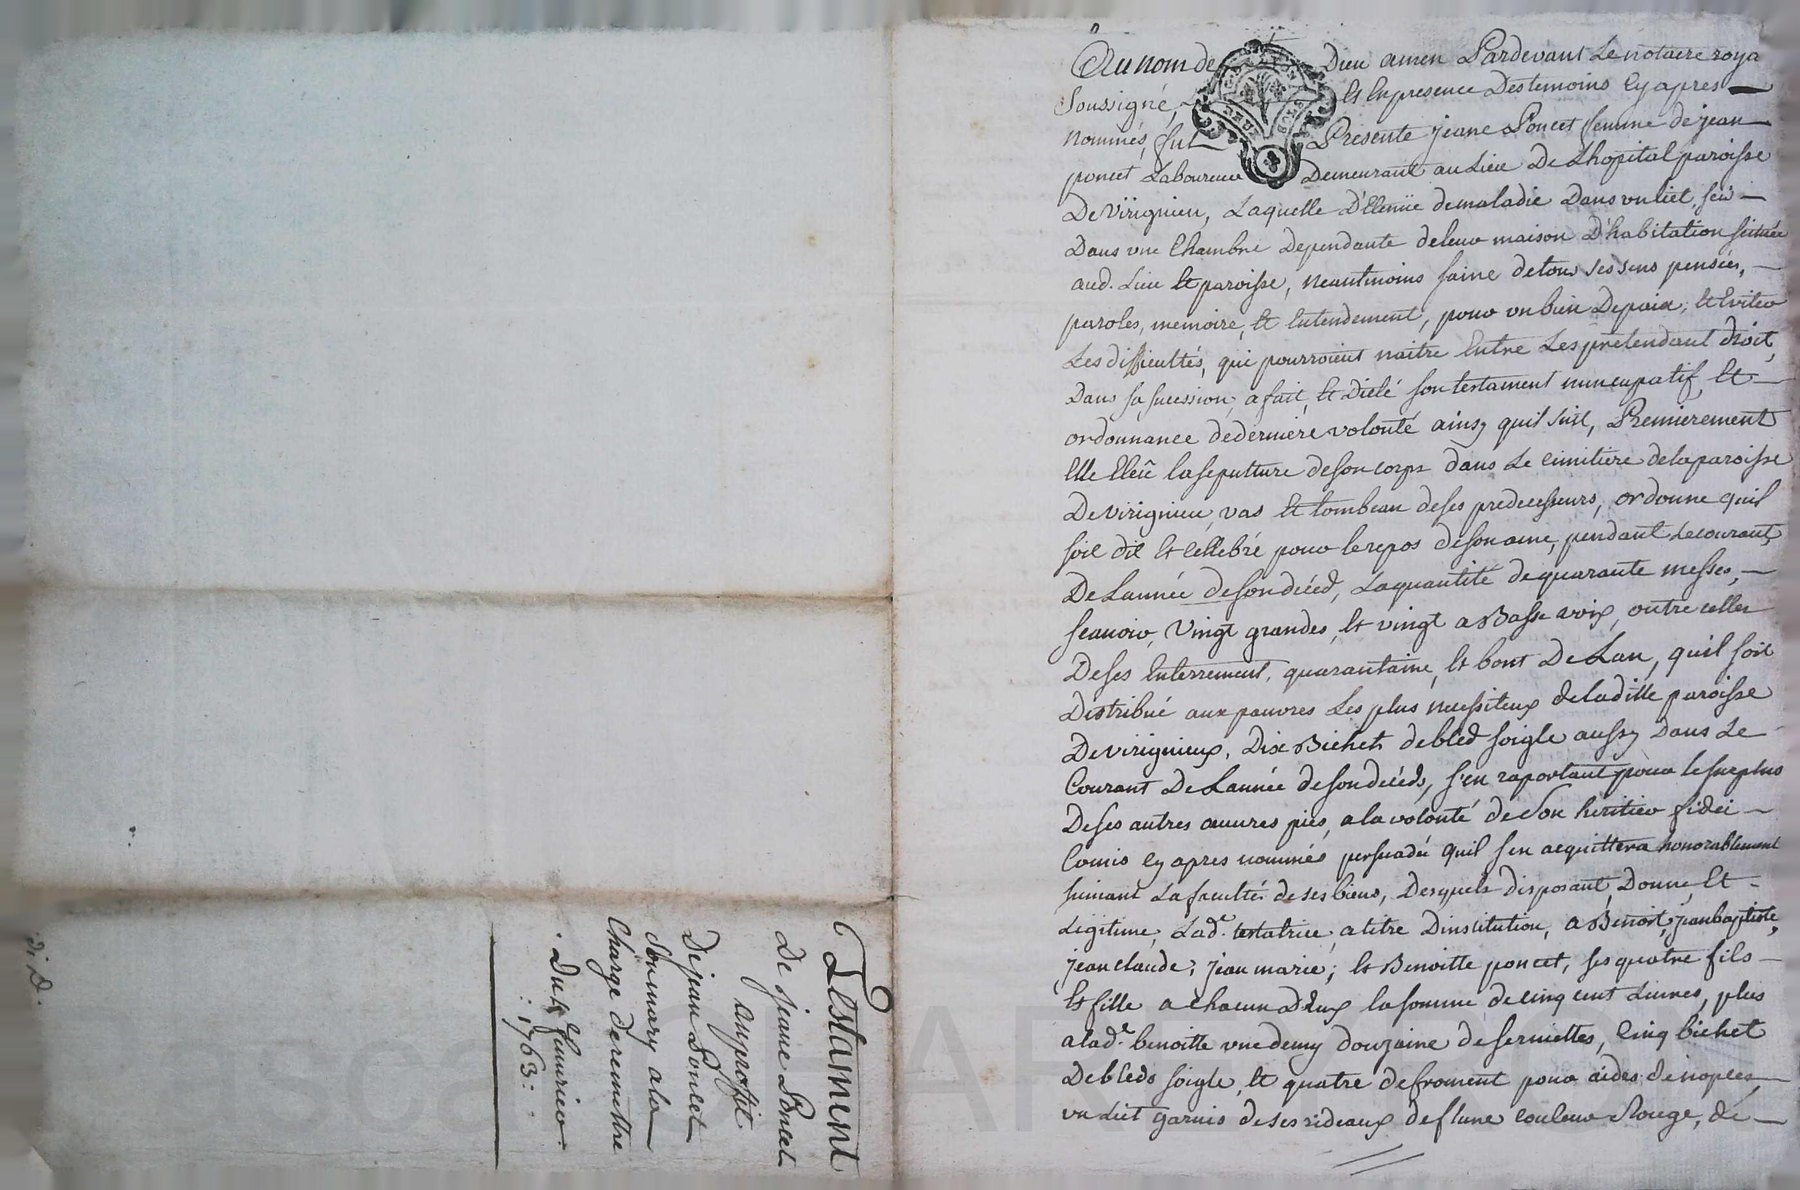 Testament
De jeane Poncet
auproffit
De jean Poncet
Son mary ala
Charge de remettre
Du 4 fenvrier
1763
Au nom de Dieu amen Pardevant Le notaire roya
Soussigné, Et En presence Des temoins Cy apres
nommés, fut Presente jeane Poncet femme de jean
poncet Laboureur Demeurant au Lieu De Lhopital paroisse
De Virignieu, Laquelle D'Etenüe de maladie Dans un liet, sein
Dans vne Chambre Dependante deleur maison D'habitation scituée
aud. Lieu Et paroisse, neantmoins saine detous ses sens pensées,
paroles, memoire, Et Entendement, pour un bien Depaix, Et Eviter
Les difficultés, qui pourroient naitre Entre Les pretendant droit,
Dans sa sucession, a fait, Et Dicté son testament nuncupatif, Et
ordonnance dederniere volonté ainsy quil suit, Premierement
Elle Eleû la seputture deson corps dans Le cimitiere delaparoisse
De virignieu, vas Et tombeau deses predecesseurs, ordonne quil
soit dit Et cellebré pour le repos deson ame, pendant Lecourant
De Lannée deson decéd, La quantité de quarante messes,
scauoir, Vingt grandes, Et vingt a Basse voix, outre celles
Deses Enterrement, quarantaine, Et bout De Lan, quil soit
Distribué aux pauvres Les plus necessiteux deladitte paroisse
De virignieux, Dix Bichets debled soigle aussy Dans Le
Courant De Lannée deson decéds, s'en raportant pour le surplus
Deses autres œuvres pies, a la volonté de son heritier fidei
Comis Cy apres nommés persuadée quil s'en acquittera honorablement
suivant La faculté de ses biens, Desquels disposant, Donne, Et
Légitime, Lad.e testatrice, a titre Dinstitution, a Benoit, jean baptiste,
jean claude; jean marie; Et Benoitte poncet, ses quatre fils
Et fille a chacun ad'eux la somme decinq cent Livres, plus
a lad.e benoitte vne demy douzaine de serviettes, Cinq bichet
Debleds soigle, Et quatre defroment pour aides de nopces,
un Liet garnis de ses rideaux deflane couleur Rouge, de